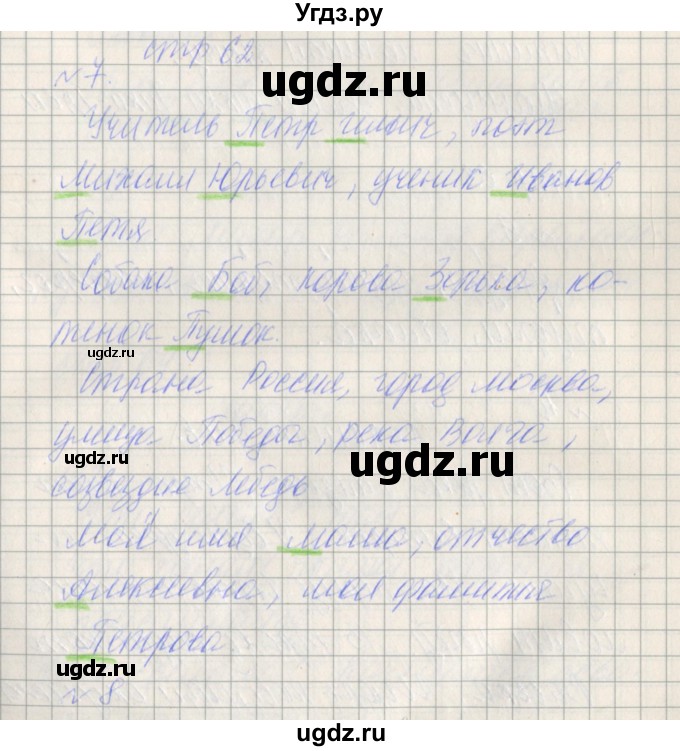 Угдз.ру
стр 62.
№ 7.
ugdz.ru
Учитель Петр Ильич, поэт
Михаил Юрьевич, ученик Иванов
Петя.
Собака Боб, корова Зорька, ко-
тенок Пушок.
ugdz.ru
Страна Россия, город Москва,
улица Победы, река Волга,
ugdz.ru
ugdz.ru
созвездие Лебедь
Моё имя Маша, отчество
Алексеевна, моя фамилия
Петрова
ugdz.ru
№ 8
ugdz.ru